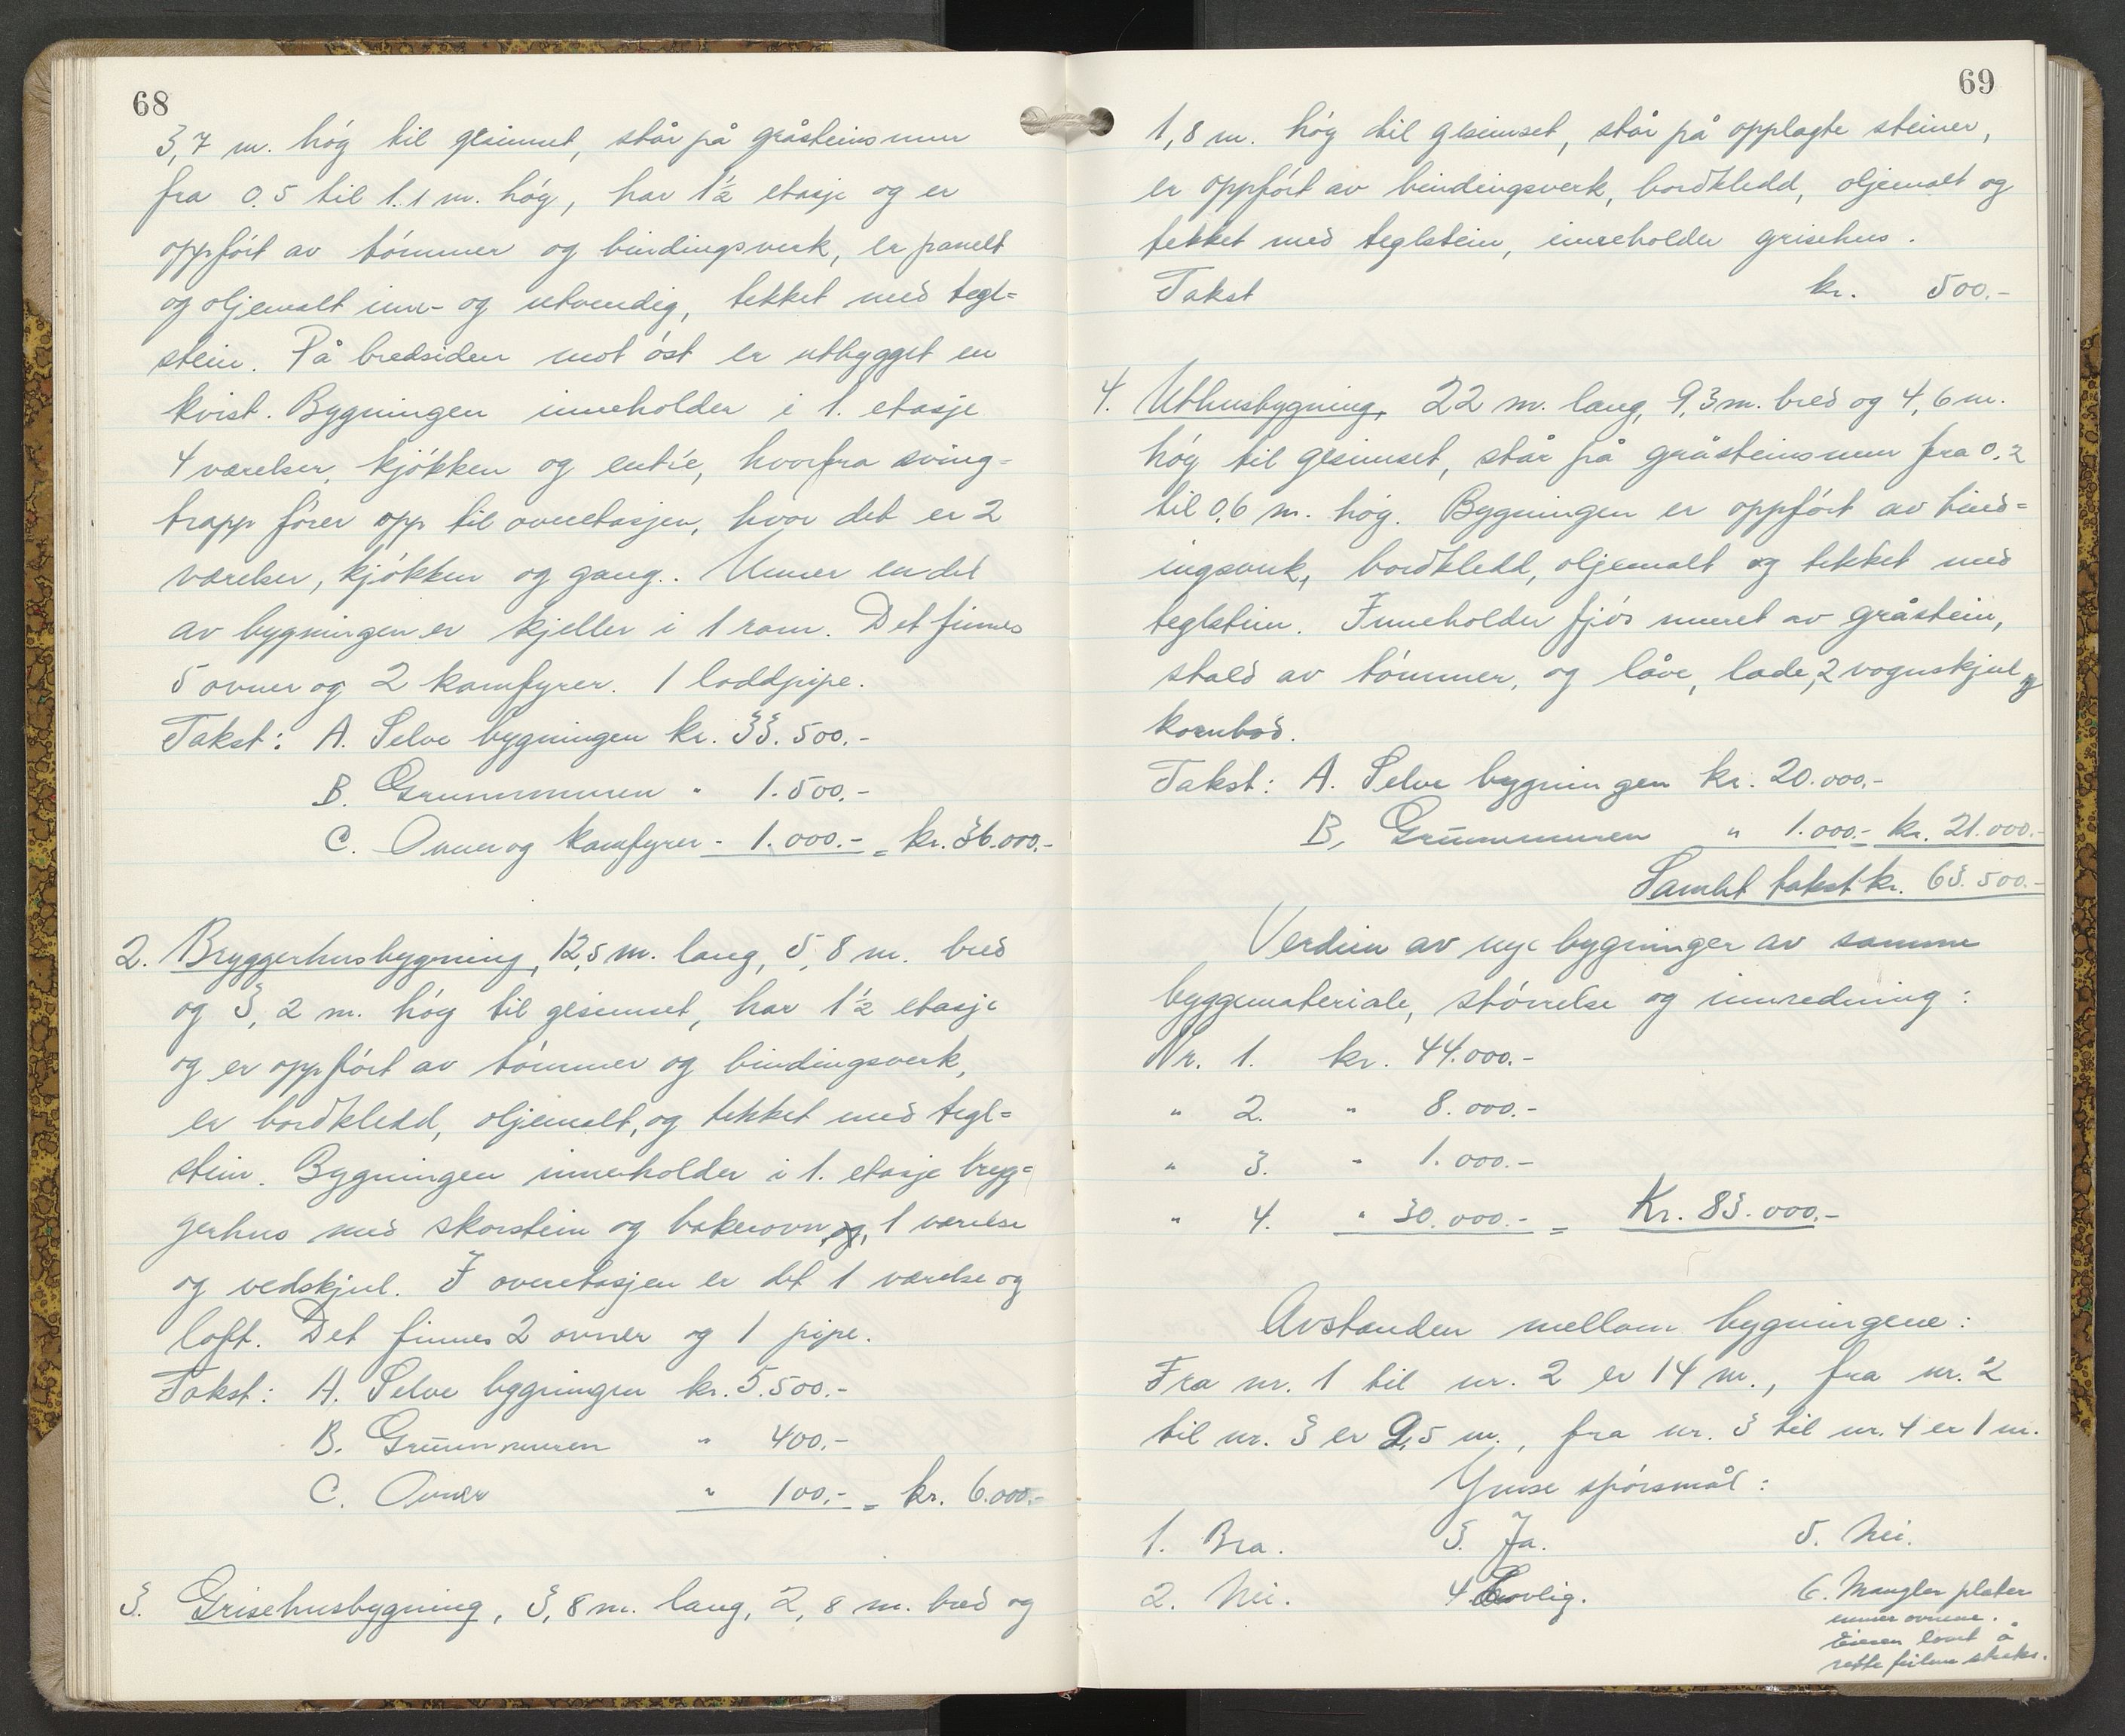 68
3,7 m. høg til gesimset, står på gråsteinsmur
fra 0.5 til 1.1 m. høg, har 1½ etasje og er
oppført av tømmer og bindingsverk, er panelt
og oljemalt inn- og utvendig, tekket med tegl=
stein. På bredsiden mot øst er utbygget en
kvist. Bygningen inneholder i 1. etasje
4 værelser, kjøkken og entré, hvorfra sving=
trapp fører opp til overetasjen, hvor det er 2
værelser, kjøkken og gang. Unner en del
av bygningen er kjeller i 1 rom. Det finnes
5 ovner og 2 komfyrer. 1 loddpipe.
Takst: A. Selve bygningen kr. 33.500.-
B. Grunnmuren " 1.500.-
C. Ovner og komfyrer - 1.000.- = kr. 36.000.-
2. Bryggerhusbygning, 12,5 m. lang, 5,8 m. bred
og 3,2 m. høg til gesimset, har 1½ etasje
og er oppført av tømmer og bindingsverk,
er bordkledd, oljemalt, og tekket med tegl=
stein. Bygningen inneholder i 1. etasje bryg=
gerhus med skorstein og bakerovn, og, 1 værelse
og vedskjul. I overetasjen er det 1 værelse og
loft. Det finnes 2 ovner og 1 pipe.
Takst: A. Selve bygningen kr. 5.500.-
B. Grunnmuren " 400.-
C. Ovner " 100.- = kr. 6.000.-
3. Grisehusbygning, 3,8 m. lang, 2,8 m. bred og
69
1,8 m. høg til gesimset, står på opplagte steiner,
er oppført av bindingsverk, bordkledd, oljemalt og
tekket med teglstein, inneholder grisehus.
Takst kr. 500.-
4. Uthusbygning, 22 m. lang, 9,3 m. bred og 4,6 m.
høg til gesimset, står på gråsteinsmur fra 0.2
til 0,6 m. høg. Bygningen er oppført av bind=
ingsverk, bordkledd, oljemalt og tekket med
teglstein. Inneholder fjøs muret av gråstein,
stald av tømmer, og låve, lade, 2 vognskjul og
kornbod.
Takst: A. Selve bygningen kr. 20.000.-
B, Grunnmuren " 1.000.- = kr. 21.000.-
Samlet takst kr. 63.500.-
Verdien av nye bygninger av samme
byggemateriale, størrelse og innredning:
Nr. 1. kr. 44.000.-
" 2. " 8.000.-
" 3. " 1.000.-
" 4. " 30.000.- = Kr. 83.000.-
Avstanden mellom bygningene:
Fra nr. 1 til nr. 2 er 14 m., fra nr. 2
til nr. 3 er 9,5 m., fra nr. 3 til nr. 4 er 1 m.
Ymse spørsmål:
1. Bra. 3. Ja. 5. Nei.
2. Nei. 4. Lovlig. 6. Mangler plater
unner ovnene.
Eieren lovet å
rette feilene straks.